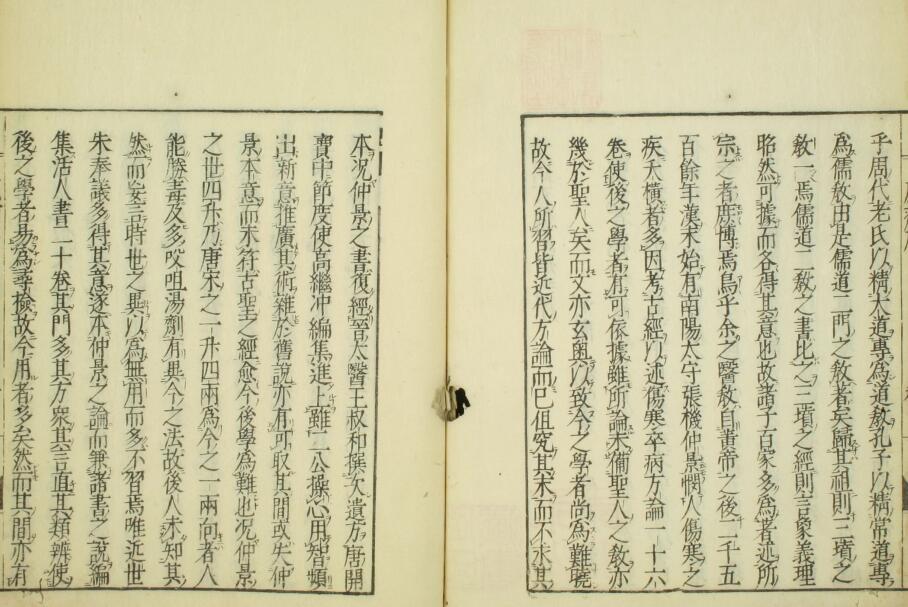 乎周代老氏以精大道專爲道敎孔子以精常道專
爲儒敎由是儒道二門之敎者矣歸其祖則三墳之
敎一焉儒道二敎之書比之三墳之經則言象義理
昭然可據而各得其意也故諸子百家多爲著述所
宗之者庶博焉烏乎余之醫敎自黃帝之後二千五
百餘年漢末始有南陽太守張機仲景憫人傷寒之
疾夭橫者多因考古經以述傷寒卒病方論一十六
卷使後之學者有可依據雖所論未備聖人之敎亦
幾於聖人矣而文亦玄奧以致今之學者尚爲難曉
故今人所習皆近代方論而已但究其末而不求其
本况仲景之書復經晉太醫王叔和撰次遺方唐開
寶中節度使高繼冲編集進上雖二公操心用智頻
出新意推廣其術雜於舊說亦有可取其間或失仲
景本意而未符古聖之經愈今後學爲難也况仲景
之世四升乃唐宋之一升四兩爲今之一兩向者人
能勝毒及多㕮咀湯劑有異今之法故後人未知其
然而妄言時世之異以爲無用而多不習焉唯近世
朱奉議多得其意遂本仲景之論而兼諸書之說編
集活人書二十卷其門多其方衆其言直其類辨使
後之學者易爲尋檢故今用者多矣然而其間亦有